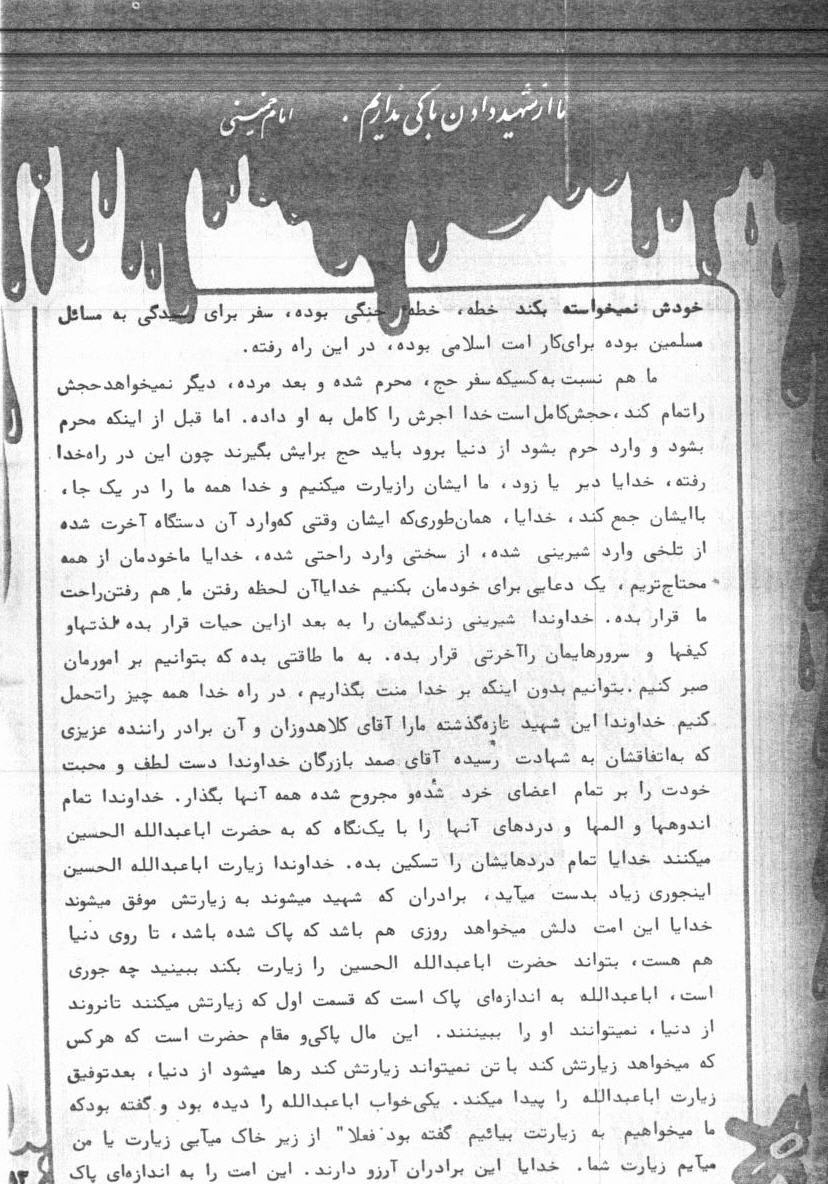 ما از شهید دادن باکی نداریم . امام خمینی
خودش نمیخواسته بکند خطه، خطه جنگی بوده، سفر برای رسیدگی به مسائل
مسلمین بوده برای‌کار امت اسلامی بوده، در این راه رفته.
ما هم نسبت به‌کسیکه سفر حج، محرم شده و بعد مرده، دیگر نمیخواهدحجش
راتمام کند،حجش‌کامل است خدا اجرش را کامل به او داده. اما قبل از اینکه محرم
بشود و وارد حرم بشود از دنیا برود باید حج برایش بگیرند چون این در راه‌خدا
رفته، خدایا دیر یا زود، ما ایشان رازیارت میکنیم و خدا همه ما را در یک جا،
باایشان جمع کند، خدایا، همان‌طوری‌که ایشان وقتی که‌وارد آن دستگاه آخرت شده
از تلخی وارد شیرینی شده، از سختی وارد راحتی شده، خدایا ماخودمان از همه
محتاج‌تریم، یک دعایی برای خودمان بکنیم خدایاآن لحظه رفتن ما هم رفتن‌راحت
ما قرار بده. خداوندا شیرینی زندگیمان را به بعد ازاین حیات قرار بده لذتهاو
کیفها و سرورهایمان راآخرتی قرار بده. به ما طاقتی بده که بتوانیم بر امورمان
صبر کنیم.بتوانیم بدون اینکه بر خدا منت بگذاریم، در راه خدا همه چیز راتحمل
کنیم خداوندا این شهید تازه‌گذشته مارا آقای کلاهدوزان و آن برادر راننده عزیزی
که به‌اتفاقشان به شهادت رسیده آقای صمد بازرگان خداوندا دست لطف و محبت
خودت را بر تمام اعضای خرد شده‌و مجروح شده همه آنها بگذار. خداوندا تمام
اندوهها و المها و دردهای آنها را با یک‌نگاه که به حضرت اباعبدالله الحسین
میکنند خدایا تمام دردهایشان را تسکین بده. خداوندا زیارت اباعبدالله الحسین
اینجوری زیاد بدست میآید، برادران که شهید میشوند به زیارتش موفق میشوند
خدایا این امت دلش میخواهد روزی هم باشد که پاک شده باشد، تا روی دنیا
هم هست، بتواند حضرت اباعبدالله الحسین را زیارت بکند ببینید چه جوری
است، اباعبدالله به اندازه‌ای پاک است که قسمت اول که زیارتش میکنند تانروند
از دنیا، نمیتوانند او را ببینند. این مال پاکی‌و مقام حضرت است که هرکس
که میخواهد زیارتش کند با تن نمیتواند زیارتش کند رها میشود از دنیا، بعدتوفیق
زیارت اباعبدالله را پیدا میکند. یکی‌خواب اباعبدالله را دیده بود و گفته بودکه
ما میخواهیم به زیارتت بیائیم گفته بود فعلا" از زیر خاک میآیی زیارت یا من
میآیم زیارت شما. خدایا این برادران آرزو دارند. این امت را به اندازه‌ای پاک